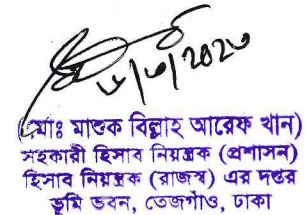 ৮/৩/2023
(মোঃ মাশুক বিল্লাহ আরেফ খান)
সহকারী হিসাব নিয়ন্ত্রক (প্রশাসন)
হিসাব নিয়ন্ত্রক (রাজস্ব) এর দপ্তর
ভূমি ভবন, তেজগাঁও, ঢাকা